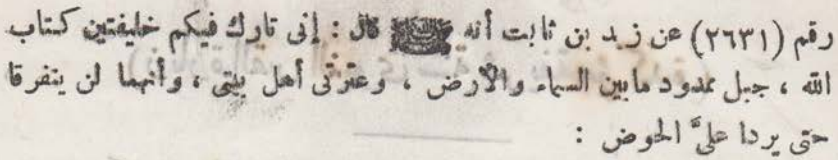 رقم (٢٦٣١) عن زيد بن ثابت أنه ﷺ قال : إنى تارك فيكم خليفتين كتاب
الله ، جبل ممدود مابين السماء والأرض ، وعترتى أهل بيتى ، وأنهما لن يتفرقا
حتى يردا علىَّ الحوض :